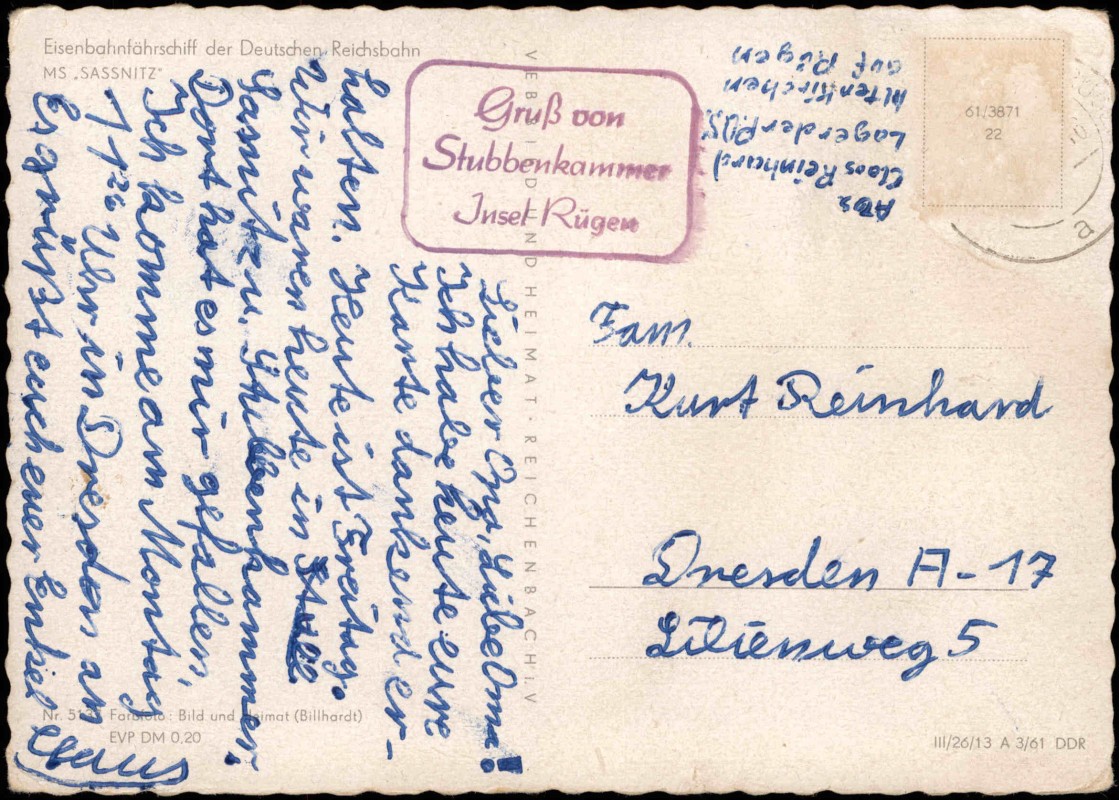 Eisenbahnfährschiff der Deutschen Reichsbahn
MS „SASSNITZ"
Gruß von
Stubbenkammer
Insel Rügen
Lieber Opa, Liebe Oma!
Ich habe heute eure
Karte dankend er-
halten. Heute ist Freitag.
Wir waren heute in
Sassnitz u. Stubbenkammer.
Dort hat es mir gefallen.
Ich komme am Montag
Uhr in Dresden an
Es grüßt euch euer Enkel
Claus
Nr. Farbfoto: Bild und Heimat (Billhardt)
EVP DM 0,20
VEB BILD UND HEIMAT · REICHENBACH i. V
Abs
Claos Reinhard
Lager der
Altenkirchen
auf Rügen
61/3871
22
Fam.
Kurt Reinhard
Dresden A-17
Lilienweg 5
III/26/13 A 3/61 DDR